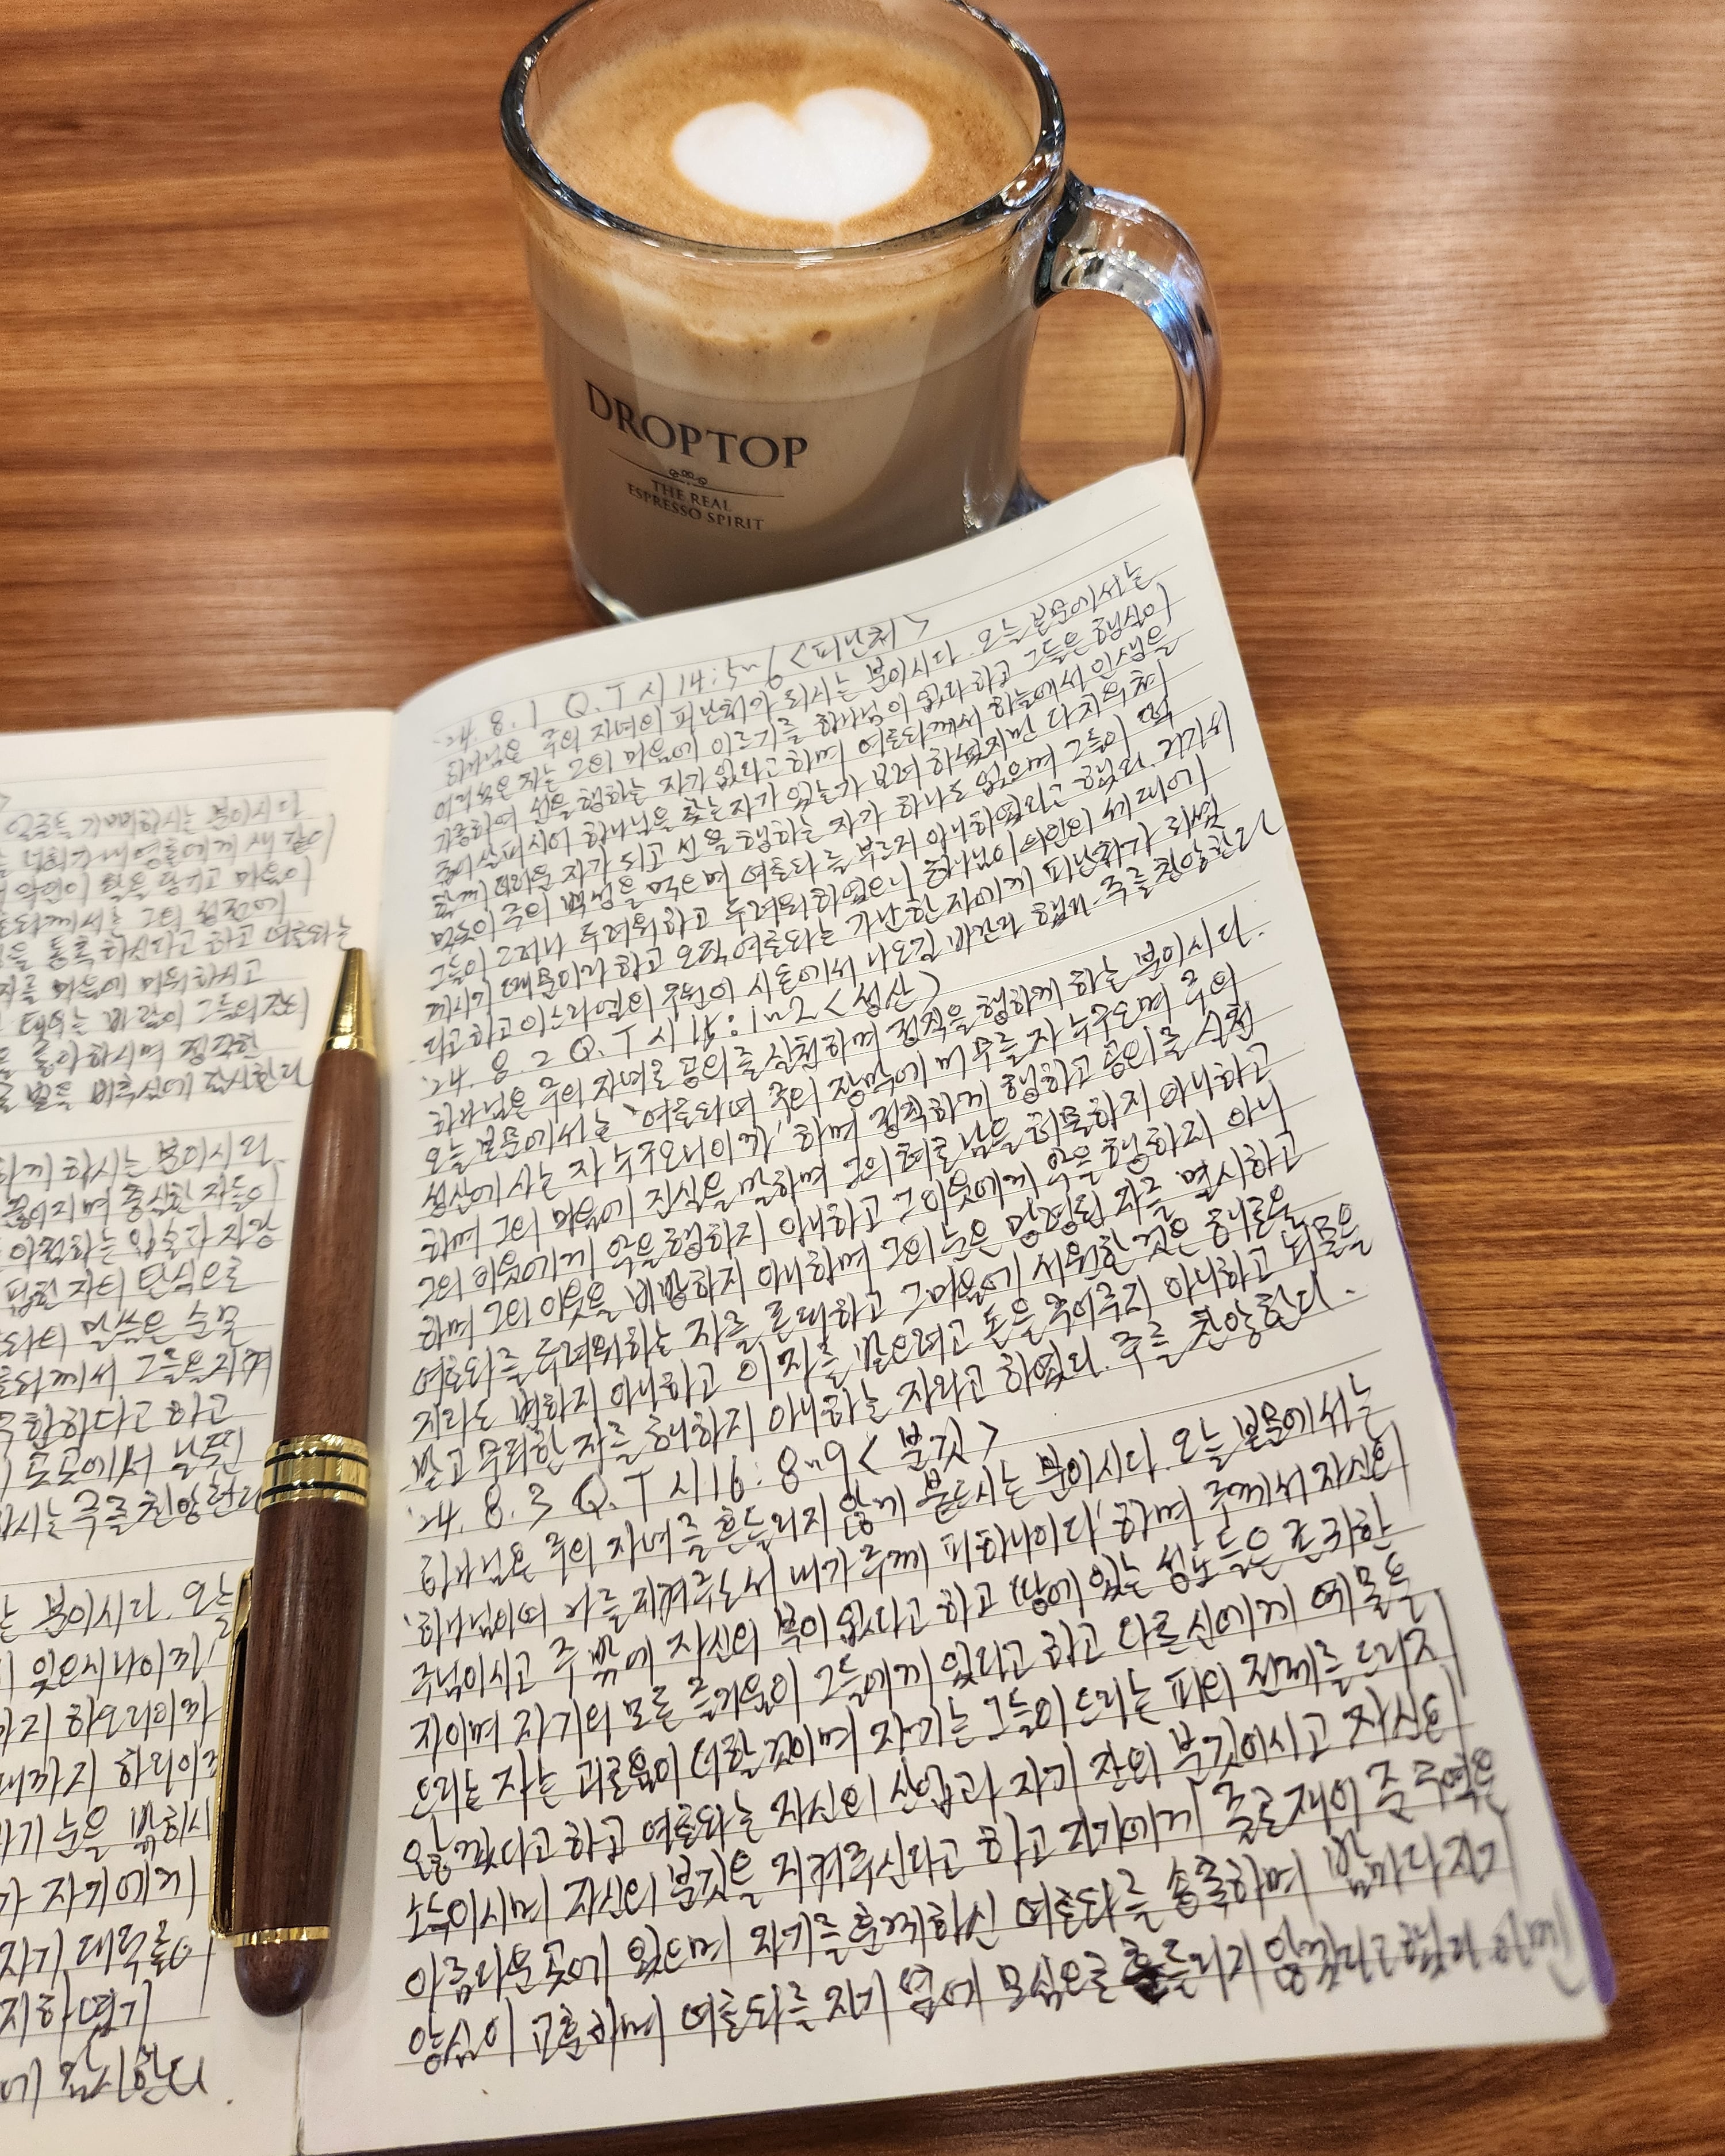 DROPTOP
THE REAL
ESPRESSO SPIRIT
일들을 기뻐하시는 분이시다
너희가 내 영혼에게 새 같이
악인이 활을 당기고 마음이
께서는 그의 성전에
을 통촉하신다고 하고 여호와는
마음에 미워하시고
태우는 바람이 그들의 잔의
좋아하시며 정직한
하게 하시는 분이시라
끊어지며 충실한 자들이
아첨하는 입술과 자랑
자의 탄식으로
말씀은 순도
께서 그들을 지켜
다고 하고
곳곳에서 날뛴
하시는 주를 찬양한다
는 분이시다. 오늘
잊으시나이까
까지 하오리이까
때까지 하리이까
눈을 밝히시
가 자기에게
자기 대적들이
'24. 8. 1 Q.T 시 14:5~6 <피난처>
하나님은 주의 자녀의 피난처가 되시는 분이시다. 오늘 본문에서는
어리석은 자는 그의 마음에 이르기를 하나님이 없다 하고 그들은 행실이
가증하여 선을 행하는 자가 없다고 하며 여호와께서 하늘에서 인생을
굽어살피시어 하나님을 찾는 자가 있는가 보려 하셨지만 다 치우쳐
함께 더러운 자가 되고 선을 행하는 자가 하나도 없으며 그들이 떡
먹듯이 주의 백성을 먹으며 여호와를 부르지 아니하였다고 했다. 거기서
그들이 그러나 두려워하고 두려워하였으니 하나님이 의인의 세대에
계시기 때문이라 하고 오직 여호와는 가난한 자에게 피난처가 되셨
다고 하고 이스라엘의 구원이 시온에서 나오길 바란다 했다. 주를 찬양한다
'24. 8. 2 Q.T 시 15:1~2 <성산>
하나님은 주의 자녀로 공의를 실천하며 정직을 행하게 하는 분이시다.
오늘 본문에서는 '여호와여 주의 장막에 머무를 자 누구오며 주의
성산에 사는 자 누구오니이까' 하며 정직하게 행하고 공의를 실천
하며 그의 마음에 진실을 말하며 그의 혀로 남을 허물하지 아니하고
그의 이웃에게 악을 행하지 아니하고 그 이웃에게 악을 행하지 아니
하며 그의 이웃을 비방하지 아니하며 그의 눈은 망령된 자를 멸시하고
여호와를 두려워하는 자를 존대하고 그 마음에 서원한 것은 해로울
지라도 변하지 아니하고 이자를 받으려고 돈을 꾸어주지 아니하고 뇌물을
받고 무죄한 자를 해하지 아니하는 자라고 하였다. 주를 찬양한다.
'24. 8. 3 Q.T 시 16:8~9 <분깃>
하나님은 주의 자녀를 흔들리지 않게 붙드시는 분이시다. 오늘 본문에서는
'하나님이여 나를 지켜주소서 내가 주께 피하나이다' 하며 주께서 자신의
주님이시고 주 밖에 자신의 복이 없다고 하고 땅에 있는 성도들은 존귀한
자이며 자기의 모든 즐거움이 그들에게 있다고 하고 다른 신에게 예물을
드리는 자는 괴로움이 더할 것이며 자기는 그들이 드리는 피의 전제를 드리지
않겠다고 하고 여호와는 자신의 산업과 자기 잔의 분깃이시고 자신의
소득이시며 자신의 분깃을 지켜주신다고 하고 자기에게 줄로 재어 준 구역은
아름다운 곳에 있으며 자기를 훈계하신 여호와를 송축하며 밤마다 자기
양심이 교훈하며 여호와를 자기 옆에 모심으로 흔들리지 않겠다고 했다. 아멘